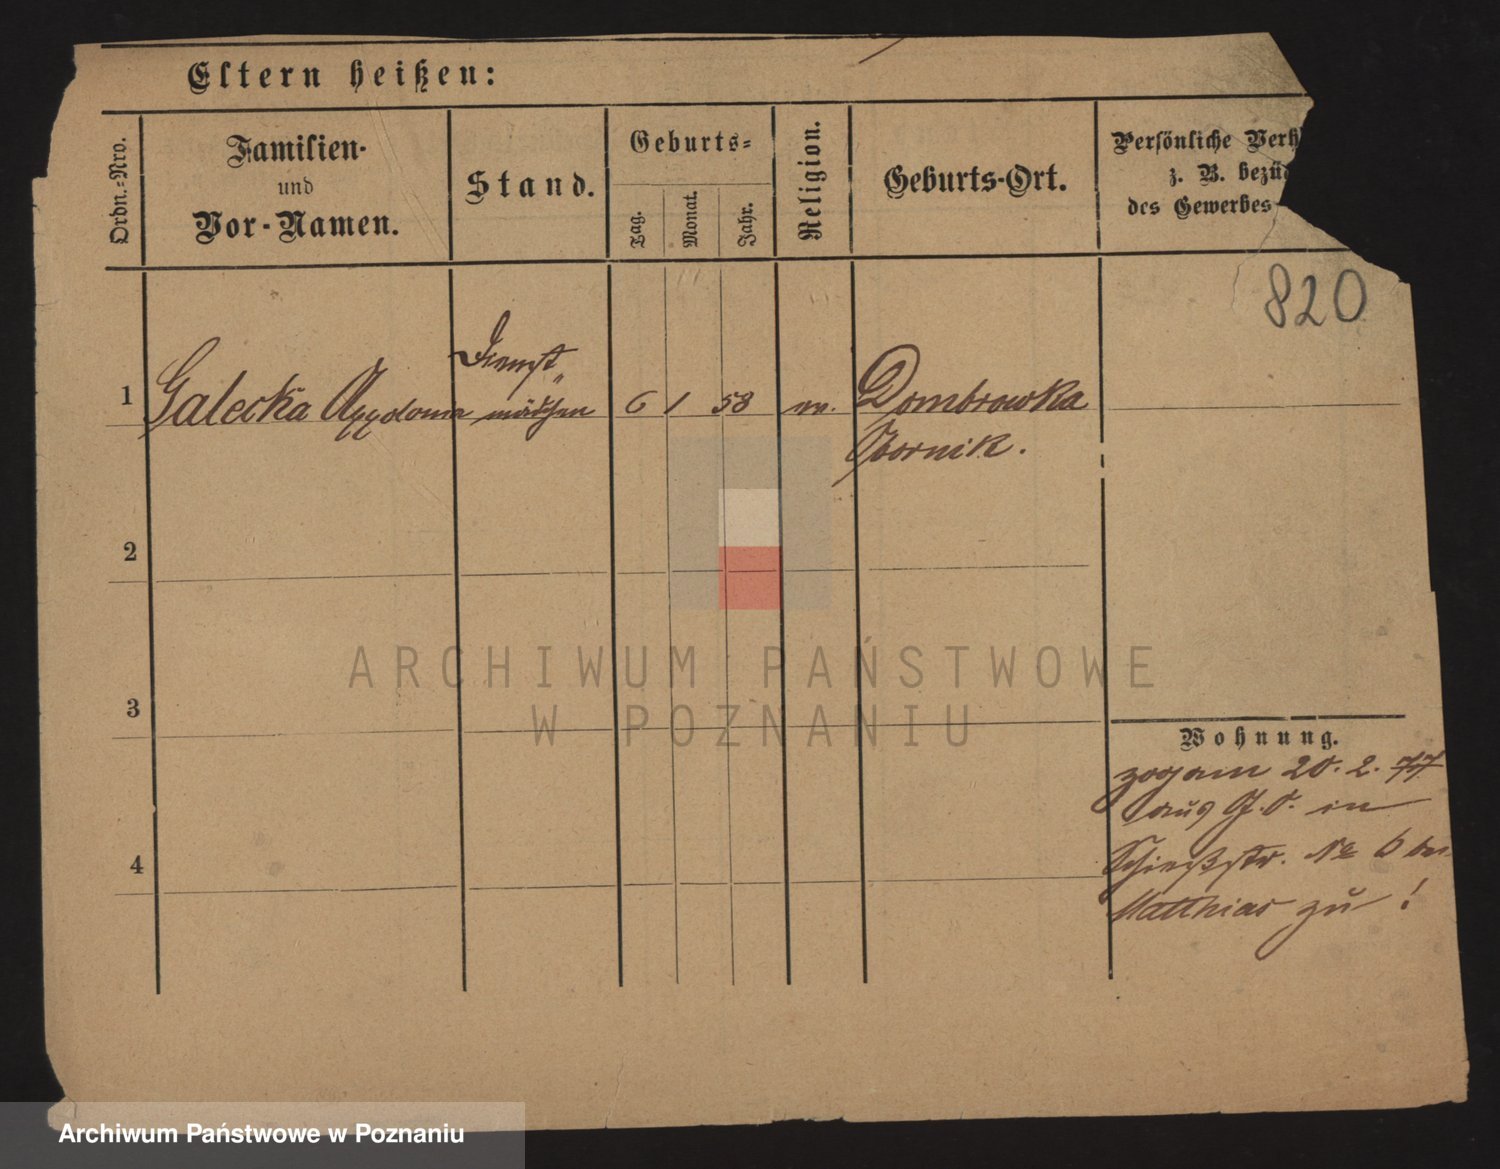 Eltern heißen:
Ordn.=Nro.
Familien-
und
Vor-Namen.
Stand.
Geburts=
Tag.
Monat.
Jahr.
Religion.
Geburts-Ort.
Persönliche Verh
z. B. bezü
des Gewerbes
820
1
Galecka
Dienst
mädchen
6 1 58
Dombrowka
Obornik.
2
3
4
Wohnung.
zog am 20. 2. 77
aus G. O. in
Schießstr. No 6 bei
Matthias zu!
ARCHIWUM PAŃSTWOWE
W POZNANIU
Archiwum Państwowe w Poznaniu